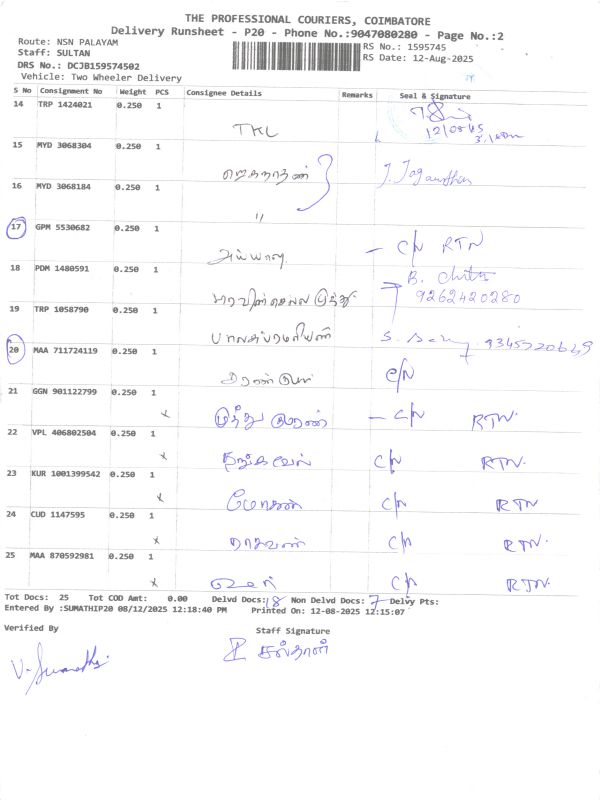 THE PROFESSIONAL COURIERS, COIMBATORE
Delivery Runsheet - P20 - Phone No.:9047080280 - Page No.:2
Route: NSN PALAYAM
Staff: SULTAN
DRS No.: DCJB159574502
Vehicle: Two Wheeler Delivery
RS No.: 1595745
RS Date: 12-Aug-2025
S No Consignment No Weight PCS Consignee Details Remarks Seal & Signature
14 TRP 1424021 0.250 1
TKL 12/08/25
15 MYD 3068304 0.250 1
ஜெகநாதன் J. Jaganathan
16 MYD 3068184 0.250 1
"
17 GPM 5530682 0.250 1
அய்யாவு - C/N RTN
18 PDM 1480591 0.250 1
B. Chitra
9262420280
19 TRP 1058790 0.250 1
பாலசுப்ரமணியணி S. 9345720649
20 MAA 711724119 0.250 1
C/N
21 GGN 901122799 0.250 1
x முத்து குமரன் - C/N RTN.
22 VPL 406802504 0.250 1
x தங்கவேல் C/N RTN.
23 KUR 1001399542 0.250 1
x மோகன் C/N RTN
24 CUD 1147595 0.250 1
x ராகவன் C/N RTN.
25 MAA 870592981 0.250 1
x C/N RTN
Tot Docs: 25 Tot COD Amt: 0.00 Delvd Docs: 18 Non Delvd Docs: 7 Delvy Pts:
Entered By :SUMATHIP20 08/12/2025 12:18:40 PM Printed On: 12-08-2025 12:15:07
Verified By Staff Signature
V. Sumathi சுல்தான்